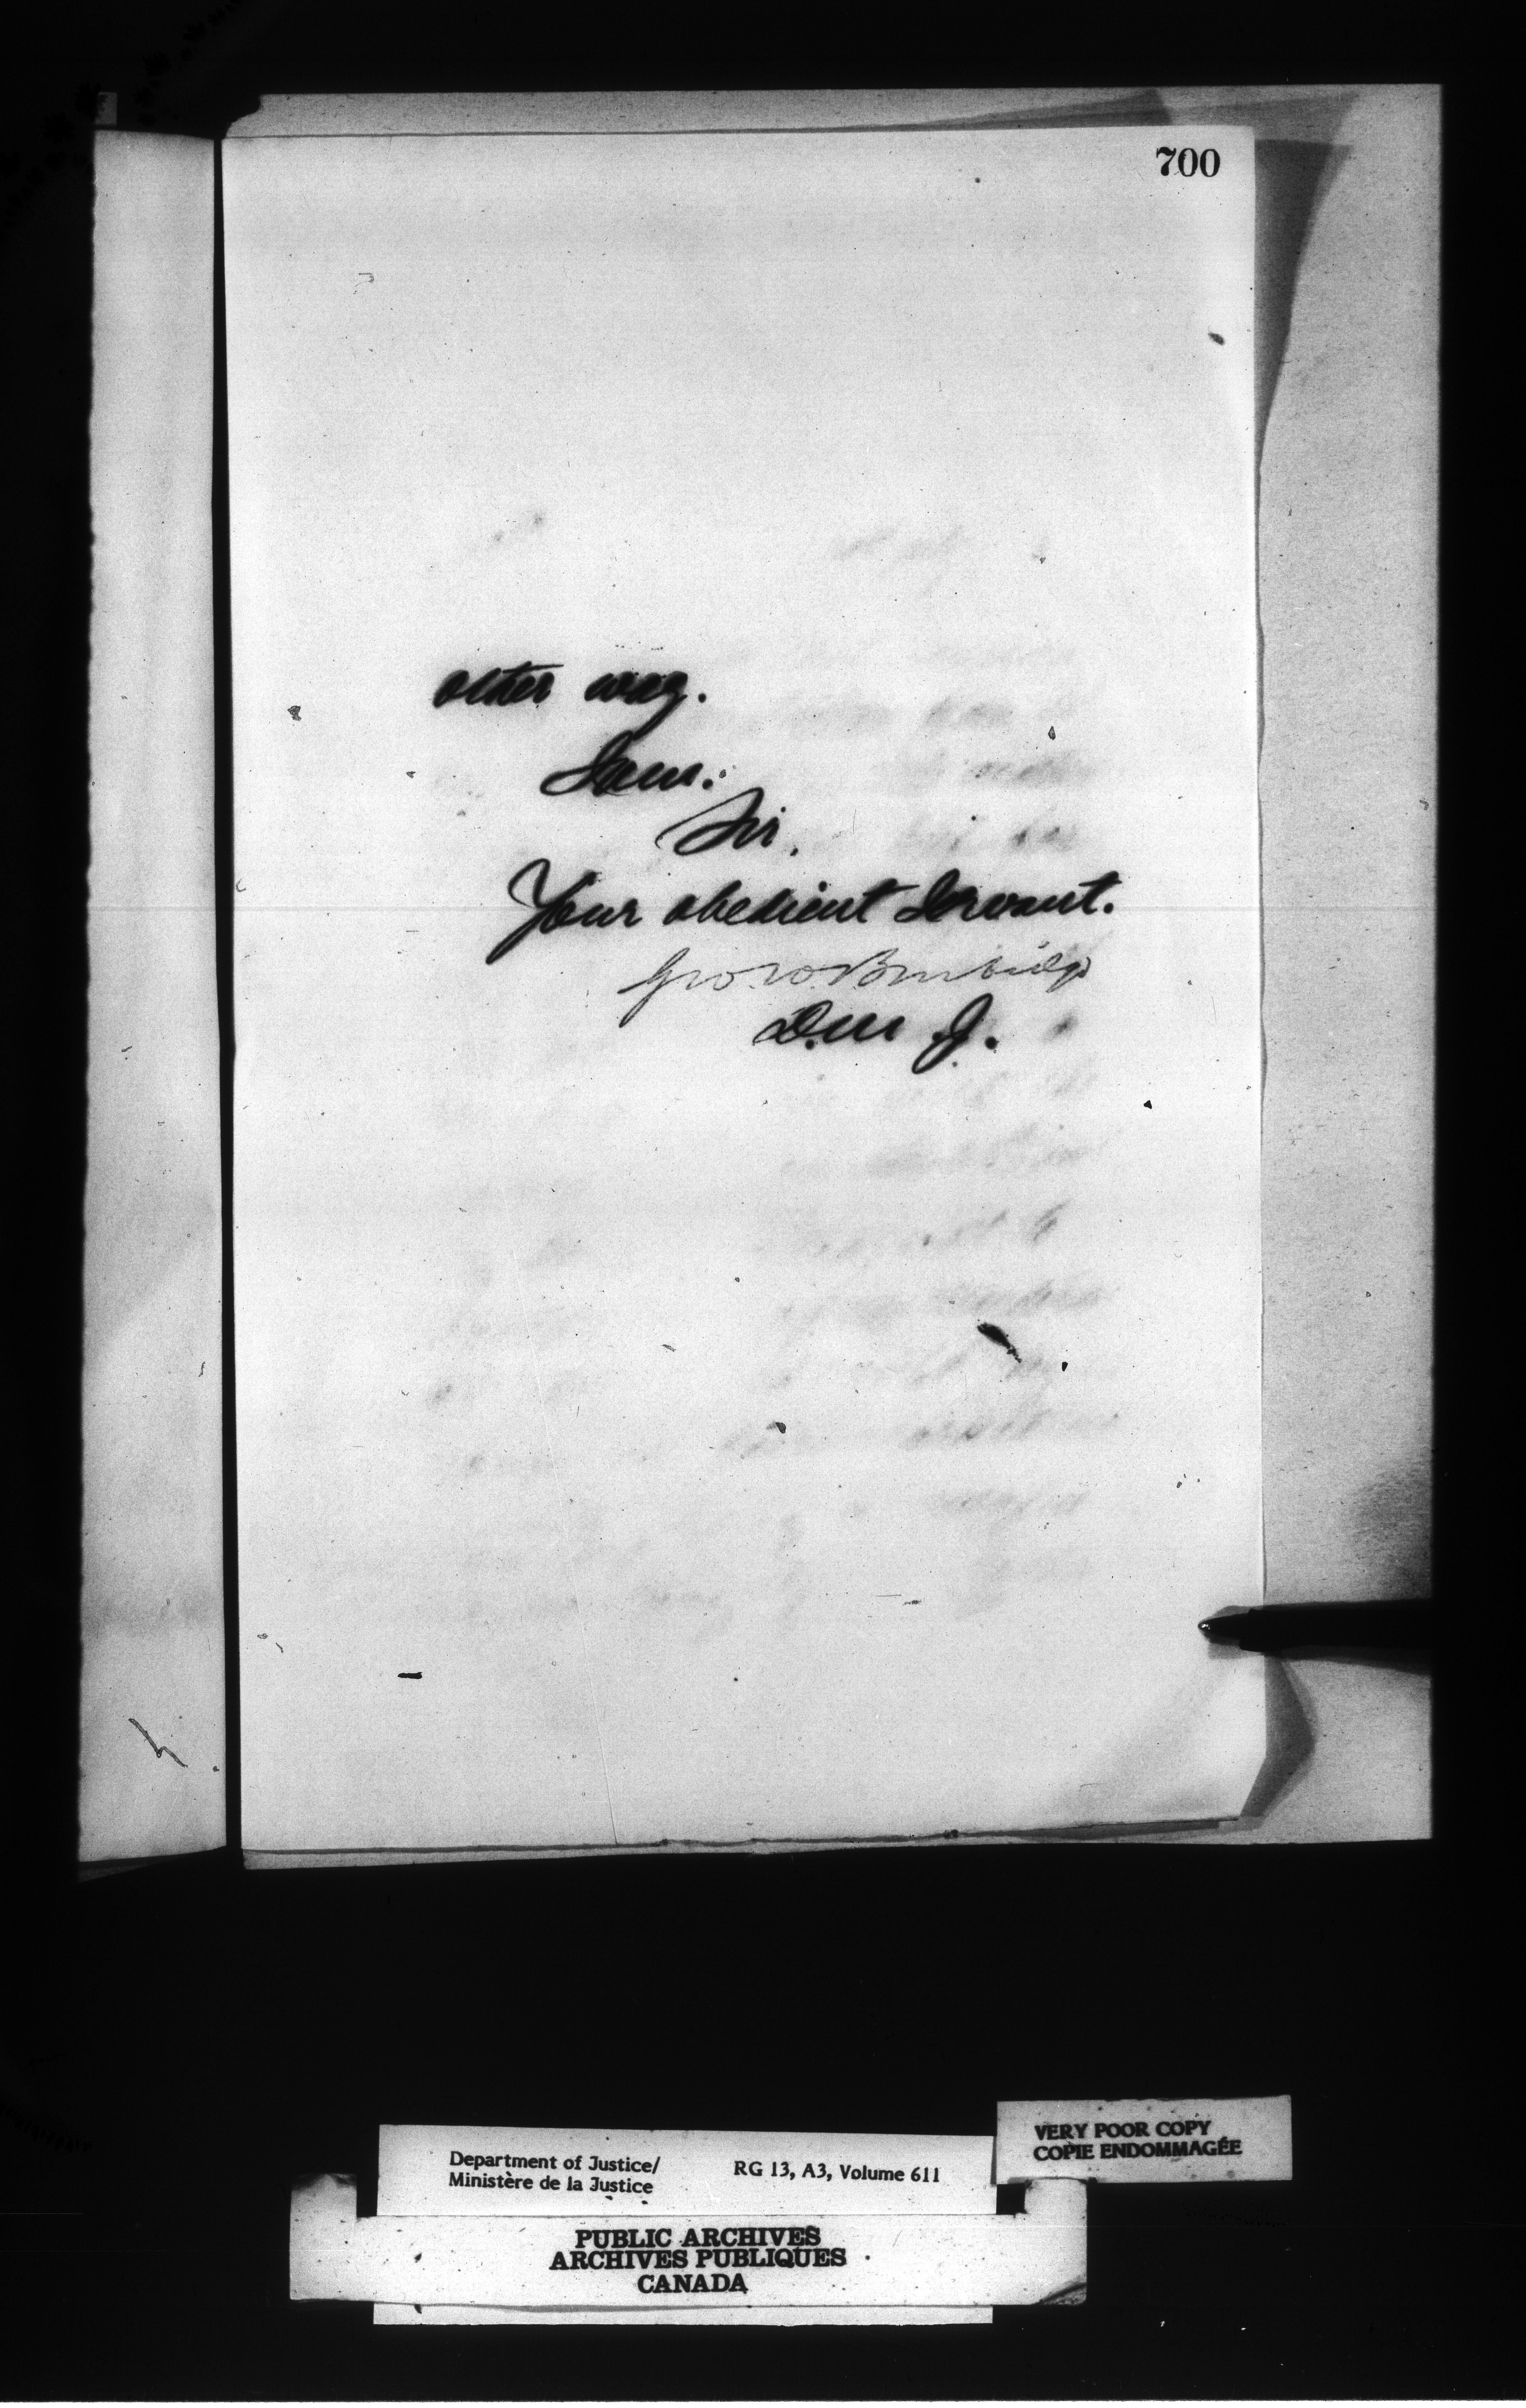 700
other way.
I am.
Sir,
Your obedient Servant.
Geo. W. Burbidge
D.M J.
Department of Justice/
Ministère de la Justice
RG 13, A3, Volume 611
VERY POOR COPY
COPIE ENDOMMAGÉE
PUBLIC ARCHIVES
ARCHIVES PUBLIQUES
CANADA